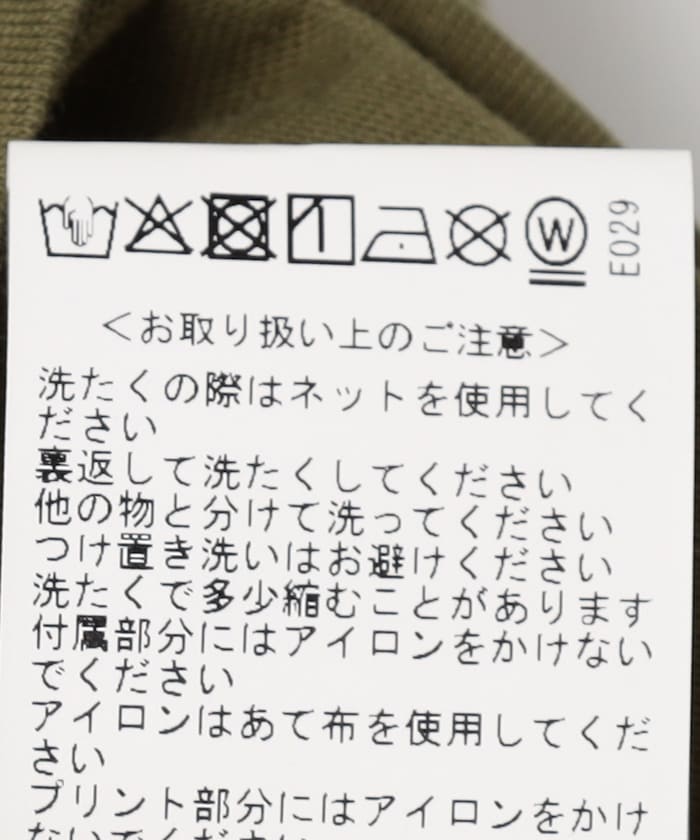 W
E029
＜お取り扱い上のご注意＞
洗たくの際はネットを使用してく
ださい
裏返して洗たくしてください
他の物と分けて洗ってください
つけ置き洗いはお避けください
洗たくで多少縮むことがあります
付属部分にはアイロンをかけない
でください
アイロンはあて布を使用してくだ
さい
プリント部分にはアイロンをかけ
ないでください